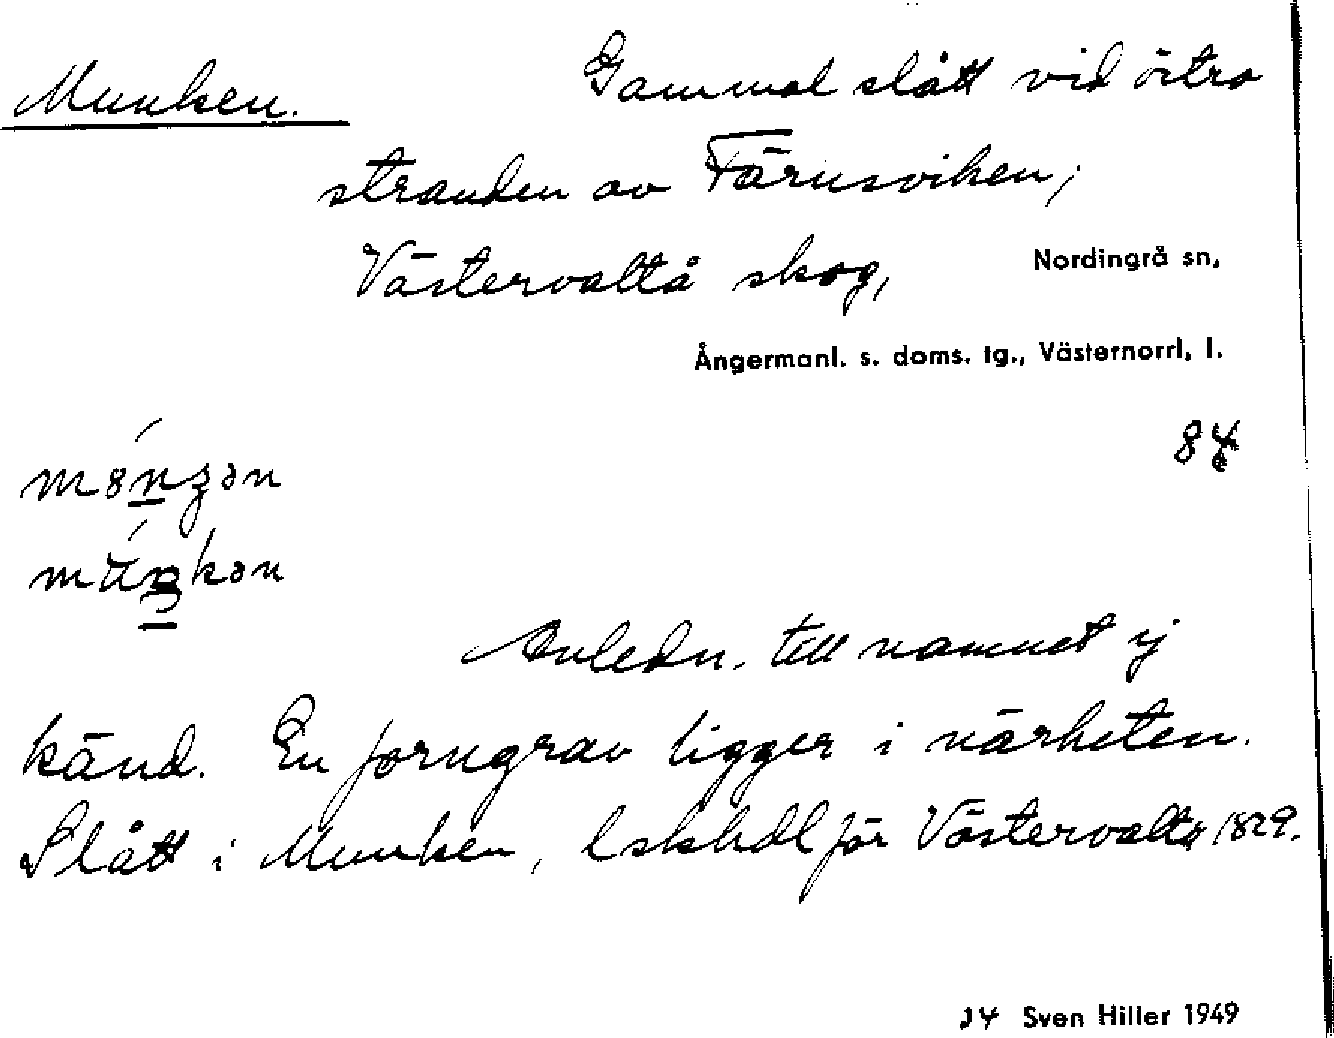 Munken. Gammal slått vid östra
stranden av Färusviken,
Västervaltå skog, Nordingrå sn,
Ångermanl. s. doms. tg., Västernorrl. l.
84
mȯngən
mūŋkən
Anledn. till namnet ej
känd. En forngrav ligger i närheten.
Slått i Munken, lskhdl för Västervalta 1829.
Sven Hiller 1949